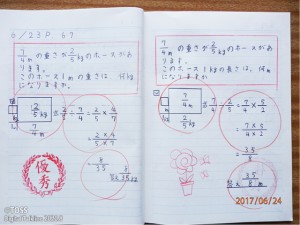 6/23 P.67
7/4mの重さが2/5kgのホースがあ
ります。
このホース1mの重さは、何kg
になりますか
2/5
kg
7/4
m
式 2/5÷7/4=2/5×4/7
=2×4/5×7
=8/35
答え 8/35kg
優秀
7/4mの重さが2/5kgのホースがあ
ります。
このホース1kgの長さは、何m
になりますか
7/4
m
2/5
kg
式 7/4÷2/5=7/4×5/2
=7×5/4×2
=35/8
答え 35/8m
2017/06/24
©TOSS